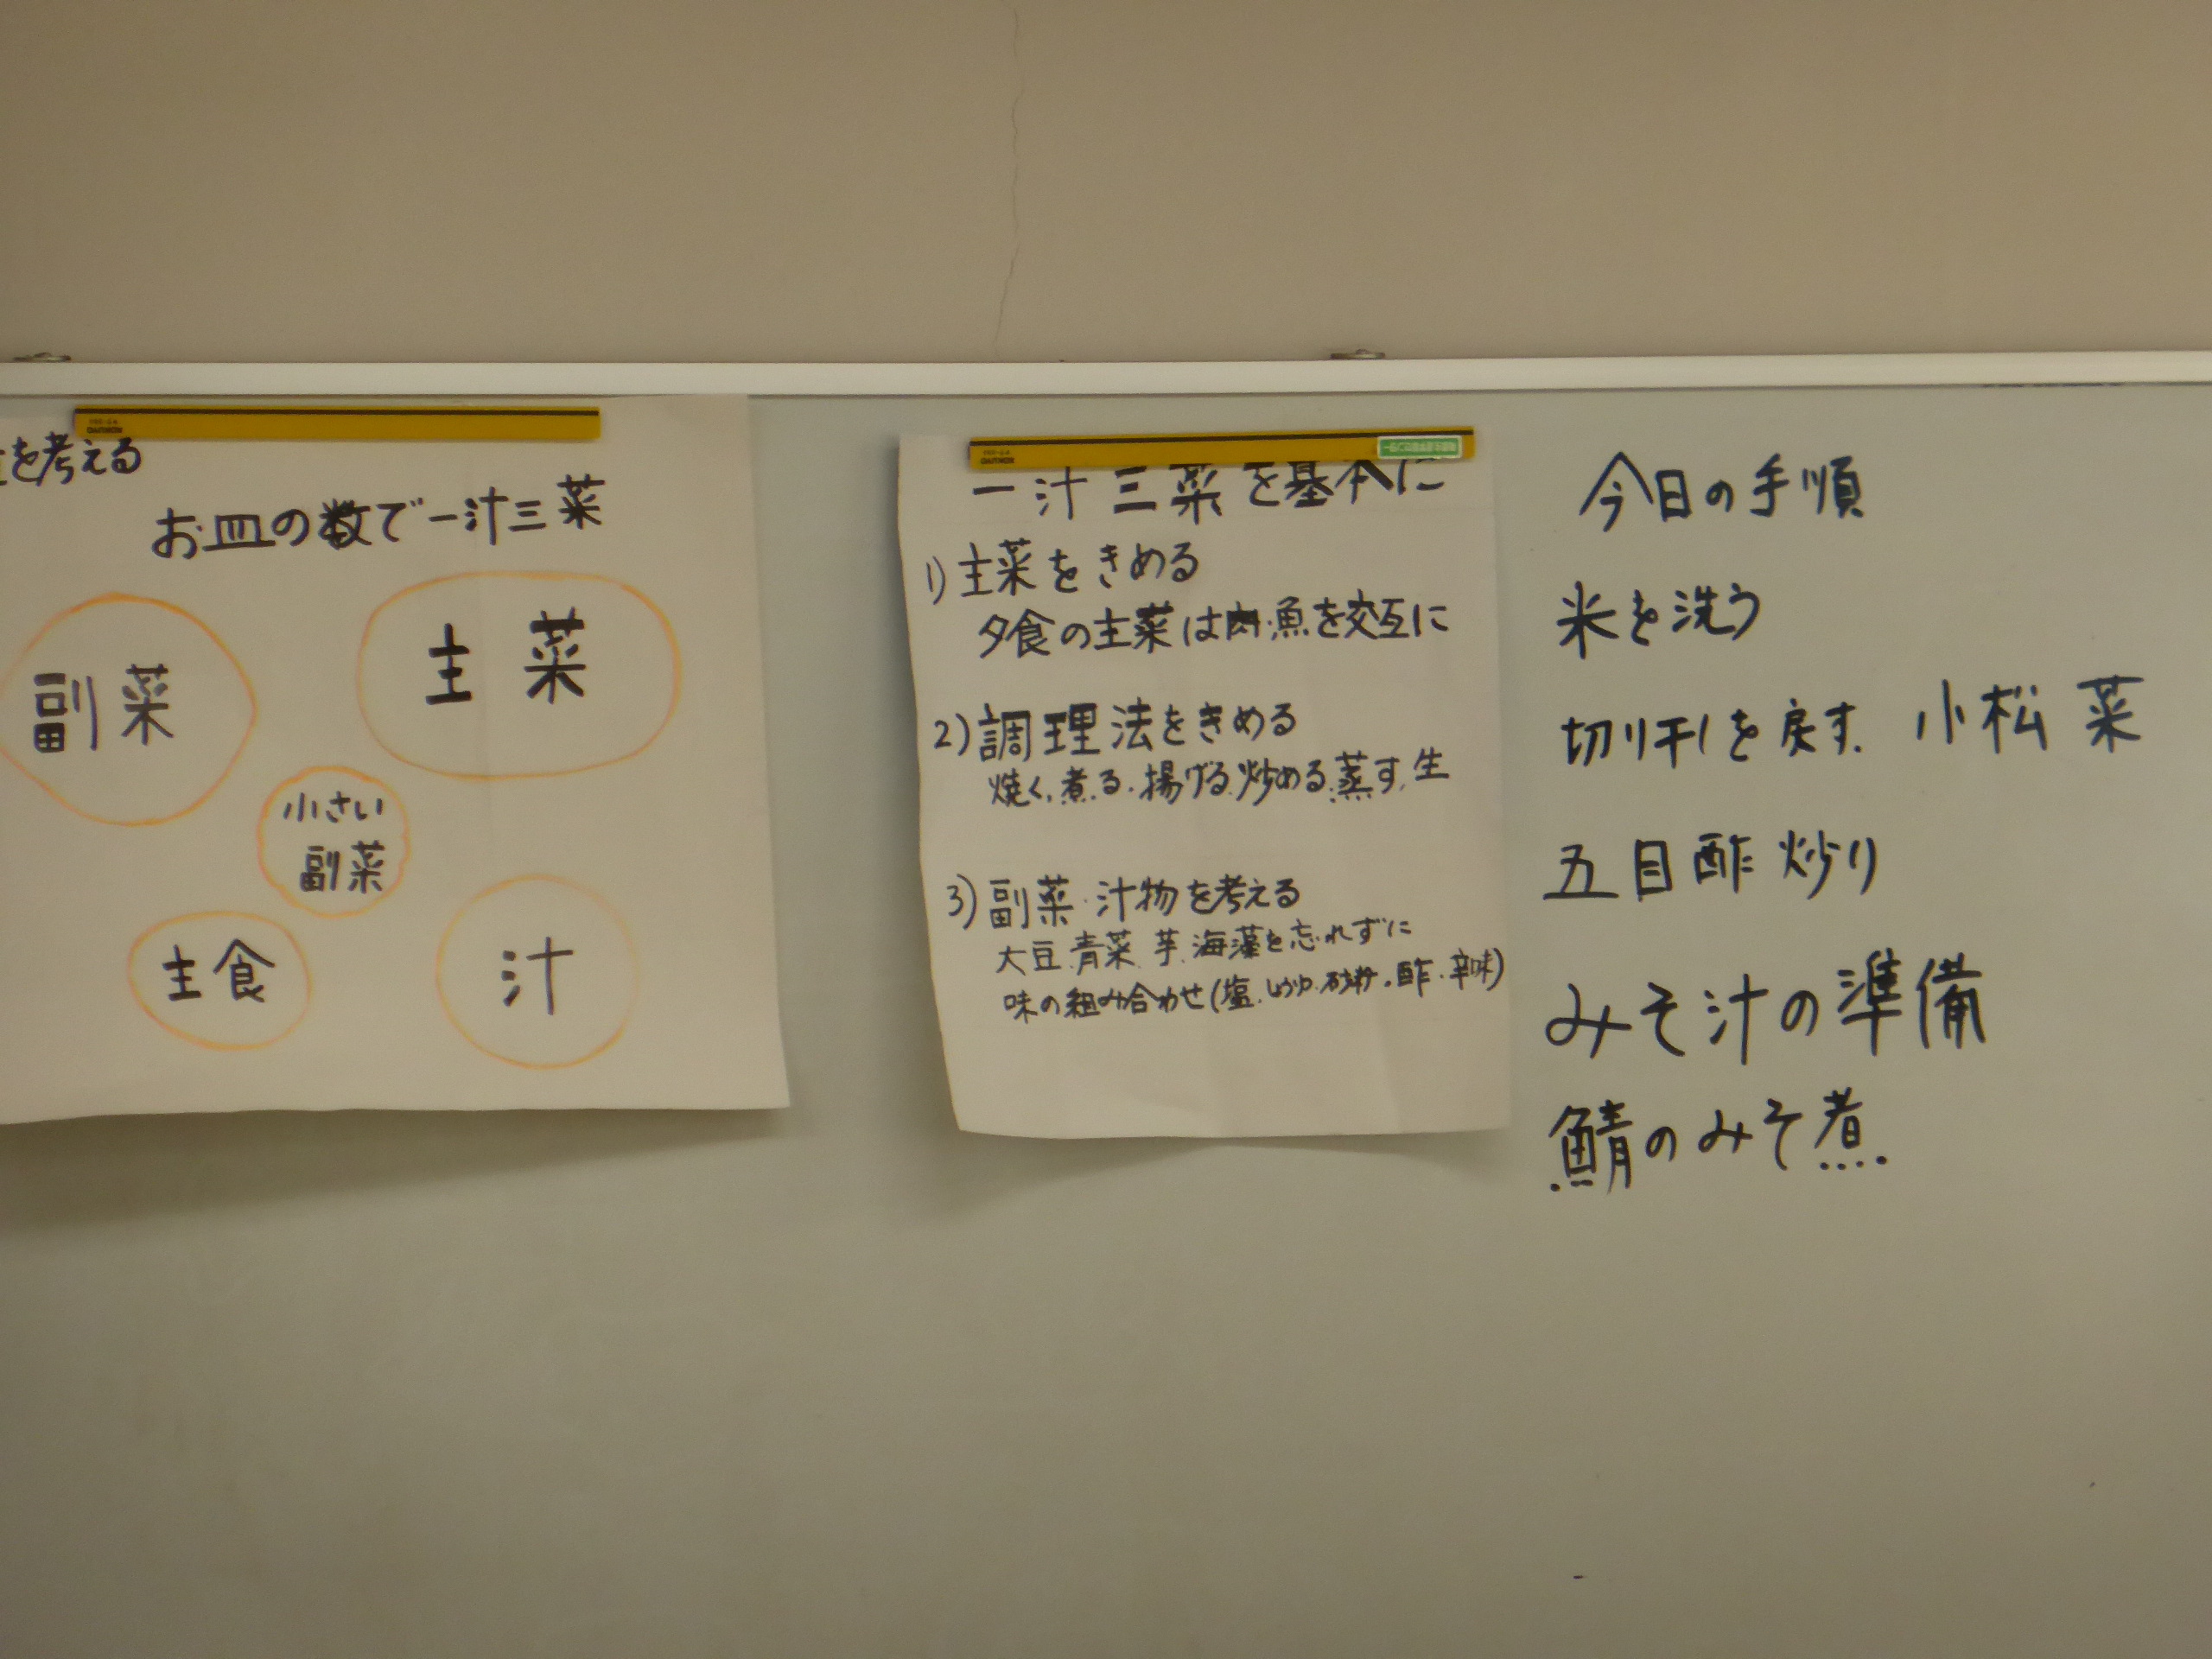 を考える
お皿の数で一汁三菜
副菜
主菜
小さい
副菜
主食
汁
一汁三菜を基本に
1) 主菜をきめる
夕食の主菜は肉・魚を交互に
2) 調理法をきめる
焼く、煮る、揚げる、炒める、蒸す、生
3) 副菜・汁物を考える
大豆、青菜、芋、海藻を忘れずに
味の組み合わせ(塩、しょうゆ、砂糖、酢、辛味)
今日の手順
米を洗う
切り干しを戻す、小松菜
五目酢炒り
みそ汁の準備
鯖のみそ煮